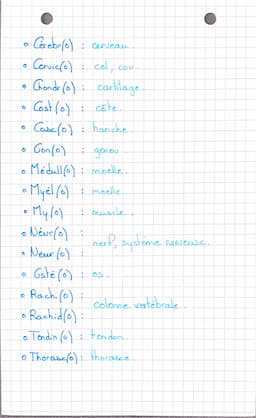 • Cérébr(o) : cerveau
• Cervic(o) : col, cou
• Chondr(o) : cartilage.
• Cost(o) : côte.
• Cox(o) : hanche.
• Gon(o) : genou.
• Médull(o) : moelle.
• Myél(o) : moelle.
• My(o) : muscle.
• Névr(o) :
nerf, système nerveux.
• Neur(o) :
• Osté(o) : os.
• Rach(o) :
colonne vertébrale.
• Rachid(o) :
• Tendin(o) : tendon.
• Thorac(o) : thorax.